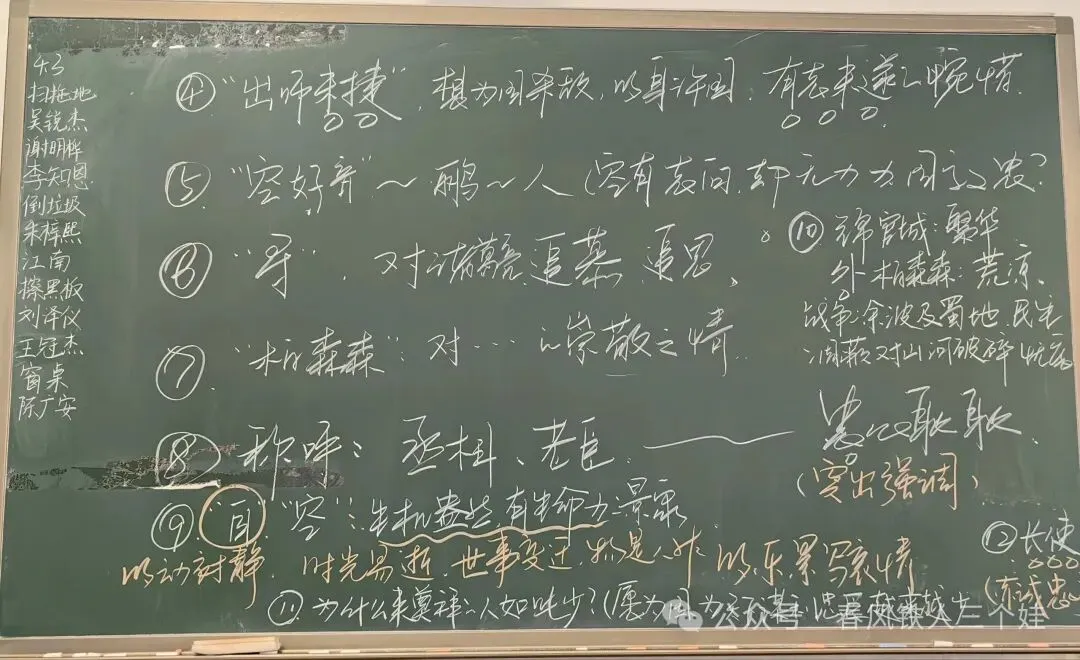 4.3
扫拖地
吴锐杰
谢明桦
李知恩
倒垃圾
朱梓熙
江南
擦黑板
刘泽仪
王冠杰
窗桌
陈广安
④“出师未捷”,想为国杀敌,以身许国,有志未遂之惋惜.
⑤“空好音”～鹂～人(空有志向,却无力为国
⑥“寻”,对诸葛亮追慕、追思、
⑦“柏森森”:对…之崇敬之情
⑧称呼:丞相、老臣——忠心耿耿.
(突出强调)
⑨“自”“空”:生机盎然,有生命力景象
以动衬静. 时光易逝,世事变迁,物是人非 以乐景写哀情
⑩ 锦官城:繁华
外柏森森:荒凉、
战争余波及蜀地 民生
凋敝 对山河破碎
⑪为什么来 人如此少?(愿为国 越来越少
⑫长使
(赤诚忠心
公众号·春风
三个娃